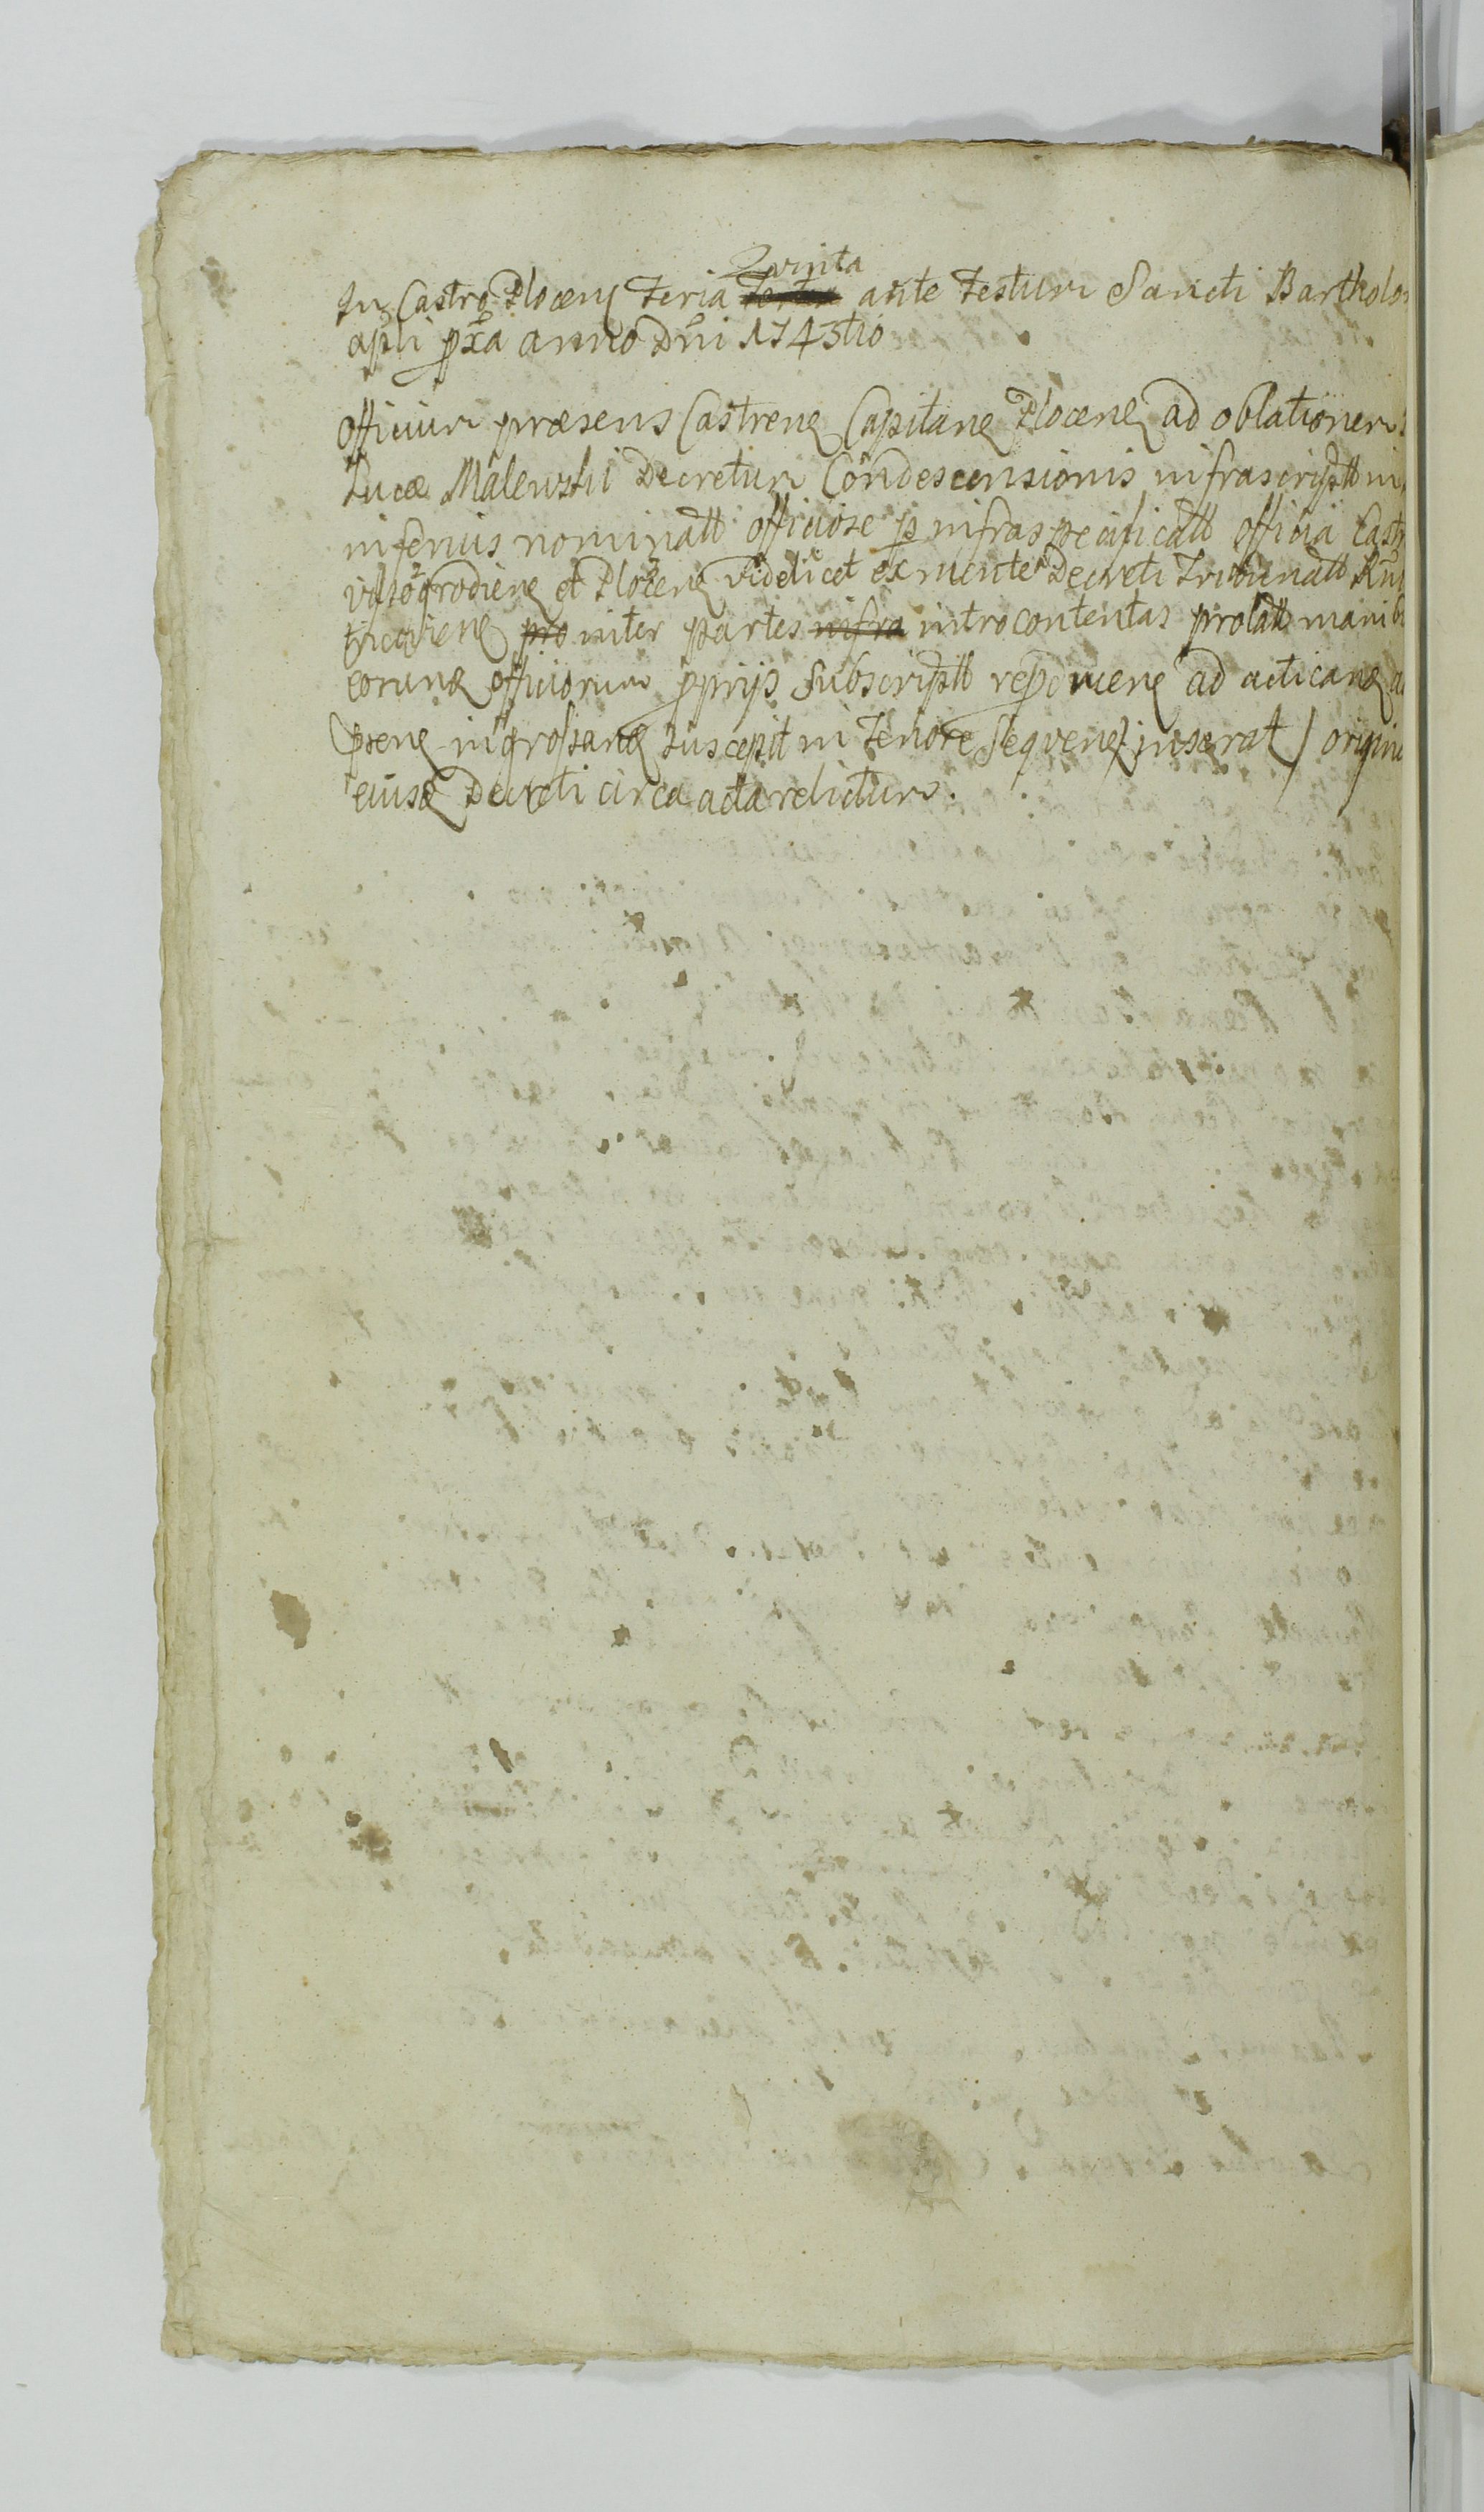 Quinta
In Castro Plocen Feria ante Festum Sancti Bartholo
apli pxa anno Dni 1743tio
Officium præsens Castren Capitan Plocen ad oblationem
Lucæ Malewski Decretum Condescensionis infrascriptt in
inferius nominatt officiose p infraspecificatt officia Castr
Vissogrodien et Plocen videlicet ex mente Decreti Tribunatt
pro inter partes infra introcontentas prolatt manib
eorund officiorum pprijs Subscriptt ad acticand
psens ingrossand suscepit in Tenore Sequen inserat / origina
eiusd Decreti circa acta relictum.